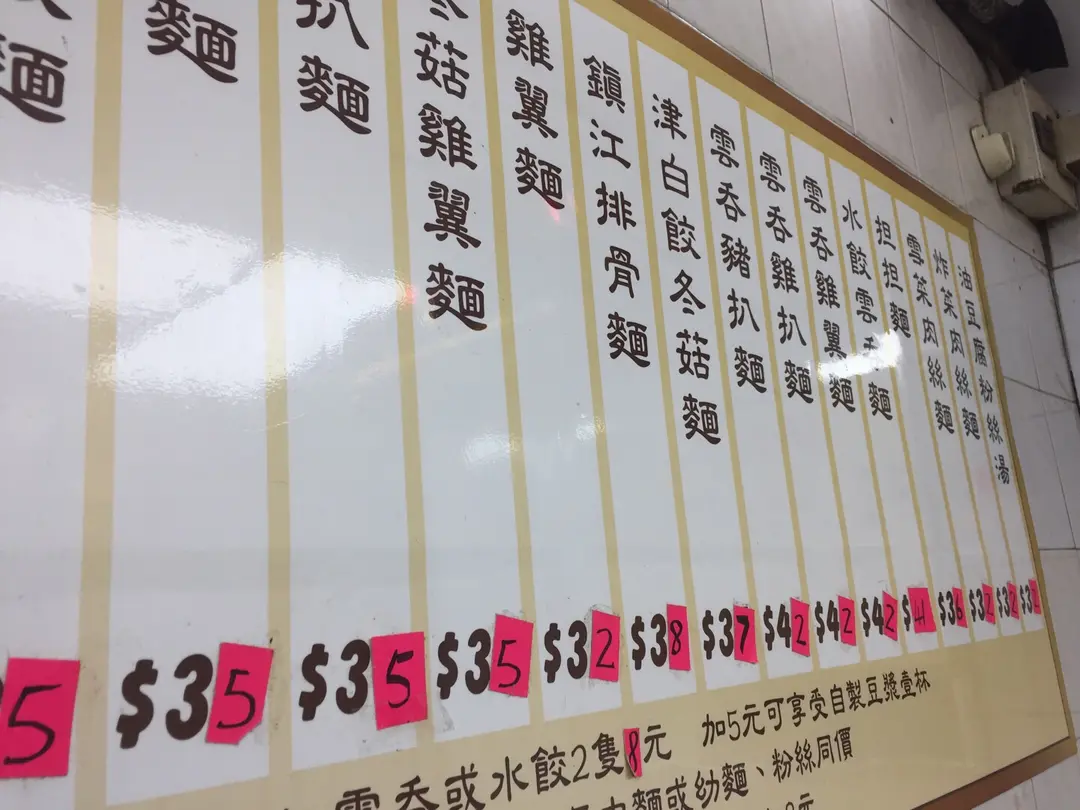 麵
麵
扒麵
菇雞翼麵
雞翼麵
鎮江排骨麵
津白餃冬菇麵
雲吞豬扒麵
雲吞雞扒麵
雲吞雞翼麵
水餃雲吞麵
担担麵
雪菜肉絲麵
炸菜肉絲麵
油豆腐粉絲湯
5 $35 $35 $35 $32 $38 $37 $42 $42 $42 $41 $36 $32 $32 $3
雲吞或水餃2隻8元 加5元可享受自製豆漿壹杯
麵或幼麵、粉絲同價
元